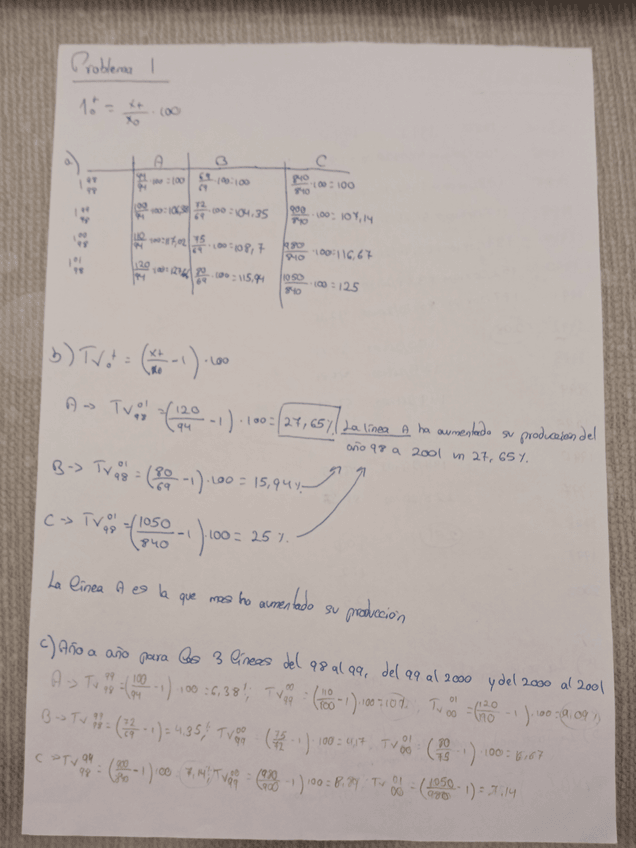 Problema 1
I₀ᵗ = xt/x0 · 100
a) A B C
I⁹⁸₉₈ 94/94 · 100 = 100 69/69 · 100 = 100 840/840 · 100 = 100
I⁹⁹₉₈ 100/94 · 100 = 106,38 72/69 · 100 = 104,35 900/840 · 100 = 107,14
I⁰⁰₉₈ 110/94 · 100 = 117,02 75/69 · 100 = 108,7 980/840 · 100 = 116,67
I⁰¹₉₈ 120/94 · 100 = 127,65 80/69 · 100 = 115,94 1050/840 · 100 = 125
b) TV₀ᵗ = (xt/x0 - 1) · 100
A → TV⁰¹₉₈ = (120/94 - 1) · 100 = 27,65% La línea A ha aumentado su produccion del
año 98 a 2001 un 27,65%.
B → TV⁰¹₉₈ = (80/69 - 1) · 100 = 15,94%
C → TV⁰¹₉₈ = (1050/840 - 1) · 100 = 25%.
La línea A es la que mas ha aumentado su producción
c) Año a año para las 3 líneas del 98 al 99, del 99 al 2000 y del 2000 al 2001
A → TV⁹⁹₉₈ = (100/94 - 1) · 100 = 6,38%; TV⁰⁰₉₉ = (110/100 - 1) · 100 = 10%. TV⁰¹₀₀ = (120/110 - 1) · 100 = 9,09%
B → TV⁹⁹₉₈ = (72/69 - 1) = 4,35%; TV⁰⁰₉₉ (75/72 - 1) · 100 = 4,17 TV⁰¹₀₀ = (80/75 - 1) · 100 = 6,67
C → TV⁹⁹₉₈ = (900/840 - 1) · 100 7,14%; TV⁰⁰₉₉ = (980/900 - 1) 100 = 8,89 TV⁰¹₀₀ = (1050/980 - 1) = 7,14